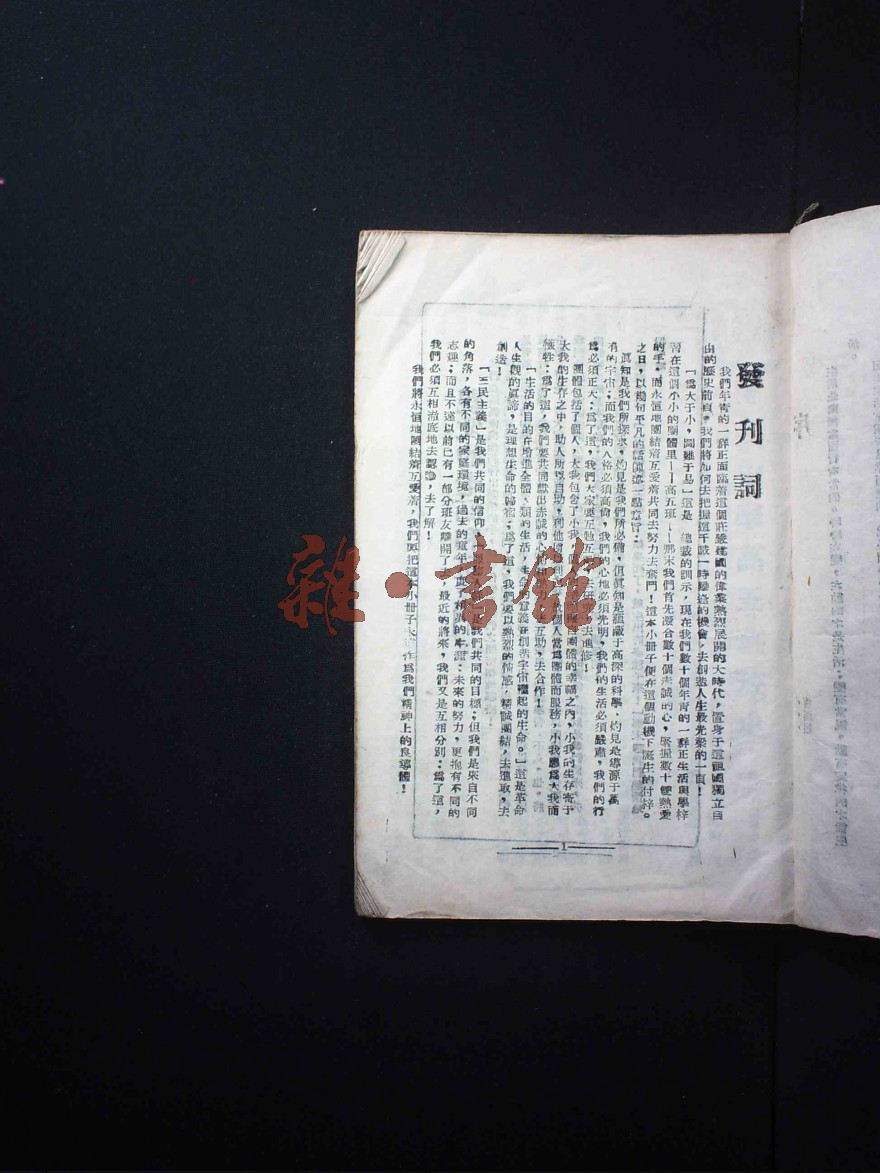 發刊詞
我們年青的一群正面臨着這個莊嚴建國的偉業熱烈展開的大時代，置身于這祖國獨立自
由的歷史前頁，我們將如何去把握這千載一時的機會，去創造人生最光榮的一頁！
「爲大于小，圖難于易」這是 總裁的訓示，現在我們數十個年青的一群正生活與學
習在這個小小的團體里——高五班——那末我們首先湊合數十個赤誠的心，緊握數十雙熱愛
的手，而永恒地團結着互愛着共同去努力去奮鬥！這本小冊子便在這個動機下誕生的付梓。
之日，以幾句平凡的話
眞知是我們所探求，灼見是我們所必備，但眞知是蘊藏于高深的科學，灼見是導源于萬
有的宇宙；而我們的人格必須高尙，我們的心地必須光明，我們的生活必須嚴肅，我們的行
爲必須正大；爲了這，我們大家要互勉互
團體包括了個人，大我包含了小我，團體的幸福之內，小我的生存寄于
大我的生存之中，助人所以自助，利他個人當爲團體而服務，小我應爲大我而
犧牲；爲了這，我們要共同獻出赤誠的心互助，去合作！
「生活的目的在增進全體人類的生活，生命的意義在創造宇宙繼起的生命。」這是革命
人生觀的眞諦，是理想生命的歸宿；爲了這，我們要以熱烈的情感，精誠團結，去進取，去
創造！
「三民主義」是我們共同的信仰，是我們共同的目標；但我們是來自不同
的角落，各有不同的家庭環境，過去的童年，度了相異的生涯；未來的努力，更抱有不同的
志趣；而且不遠以前已有一部分班友離開了，最近的將來，我們又是互相分別；爲了這，
我們必須互相澈底地去認識，去了解！
我們將永恒地團結着互愛着，我們要把這本小冊子永作爲我們精神上的良導體！
1
序
雜·書館